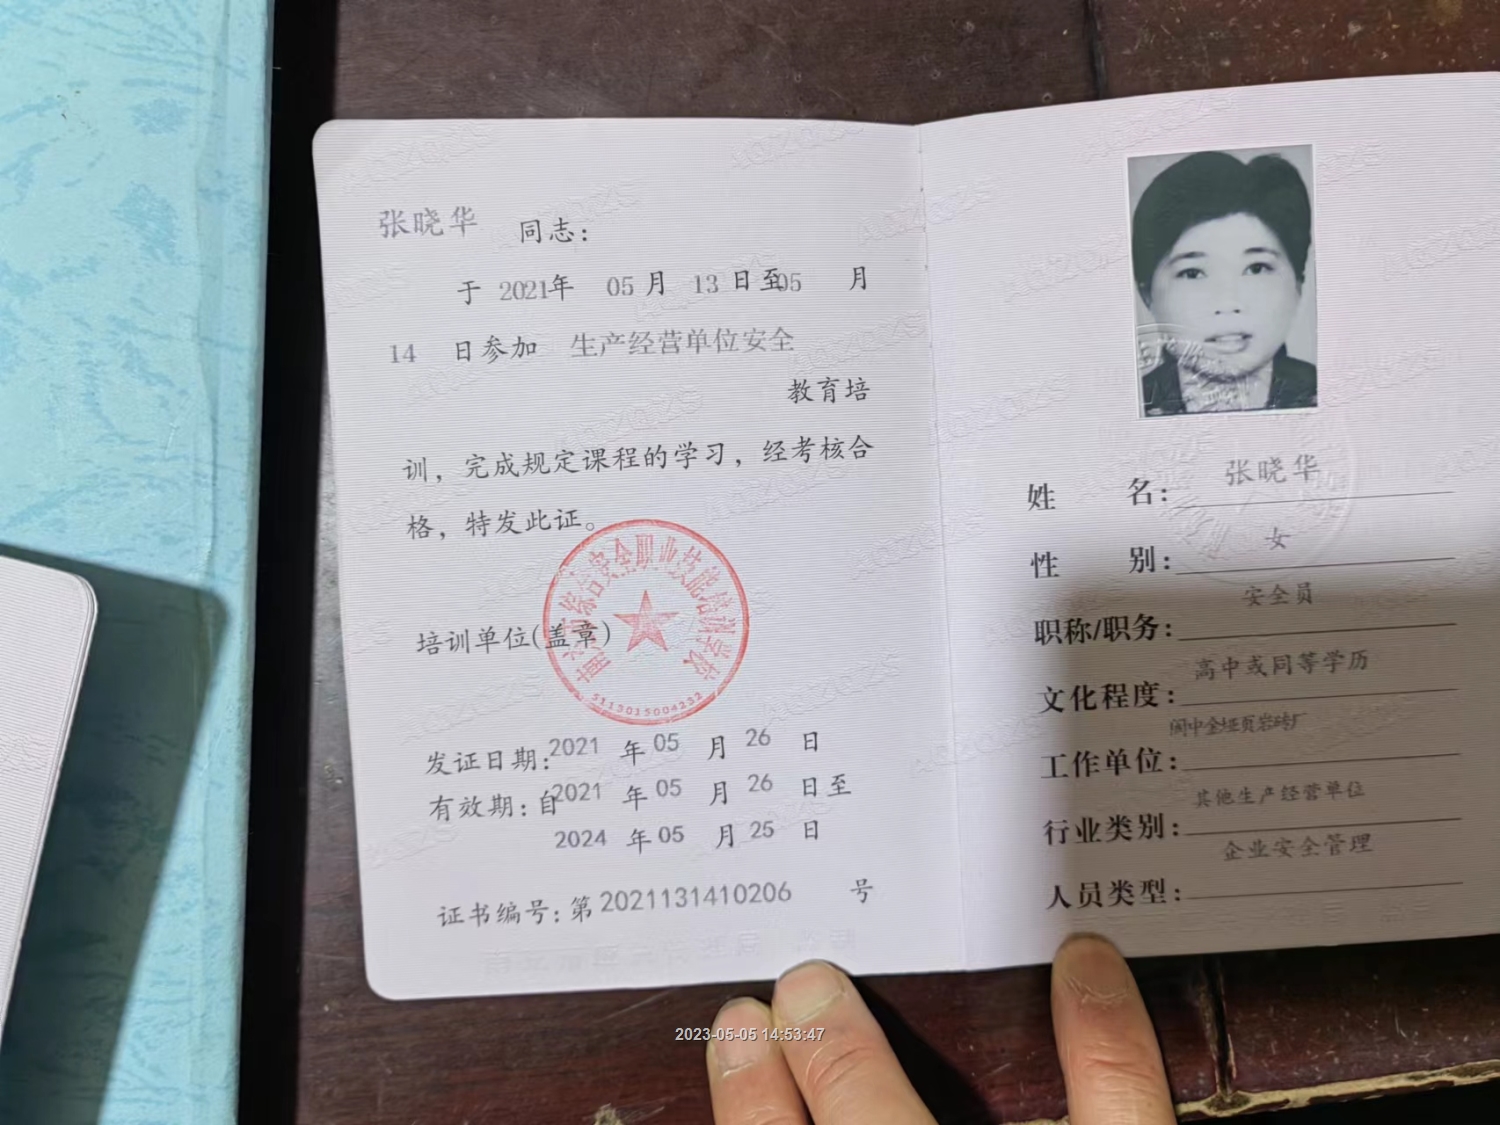 张晓华 同志：
于 2021年 05月 13日至05 月
14 日参加 生产经营单位安全
教育培
训，完成规定课程的学习，经考核合
格，特发此证。
培训单位(盖章)
综合安全职业技能培训学校
5113015004232
发证日期：2021 年05 月 26 日
有效期：自2021 年05 月 26 日至
2024 年05 月25 日
证书编号：第2021131410206 号
姓 名：张晓华
性 别：女
职称/职务：安全员
文化程度：高中或同等学历
工作单位：阆中金垭页岩砖厂
行业类别：其他生产经营单位
人员类型：企业安全管理
2023-05-05 14:53:47